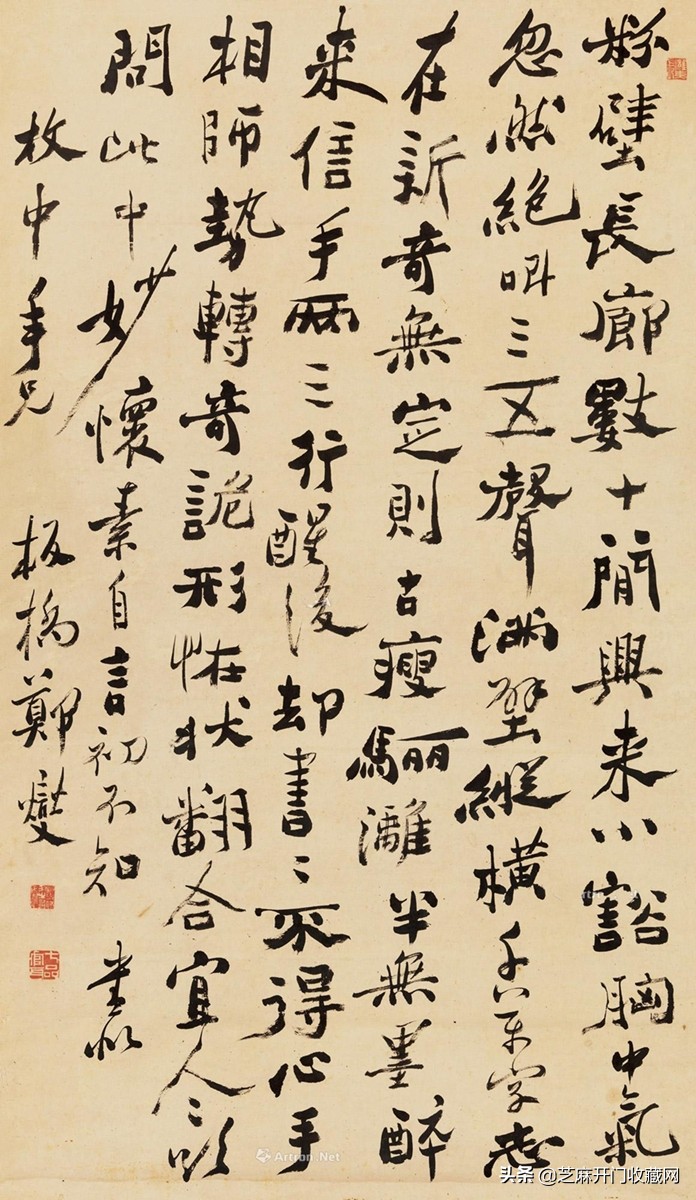 粉壁長廊數十間興來小豁胸中氣
忽然絕叫三五聲滿壁縱橫千万字志
在新奇無定則古瘦驪灕半無墨醉
來信手兩三行醒後却書〻不得心手
相師勢轉奇詭形怪状翻合宜人〻欲
問此中妙懷素自言初不知 書似
枚中年兄 板橋鄭燮
七品官耳
Artron.Net
头条 @芝麻开门收藏网